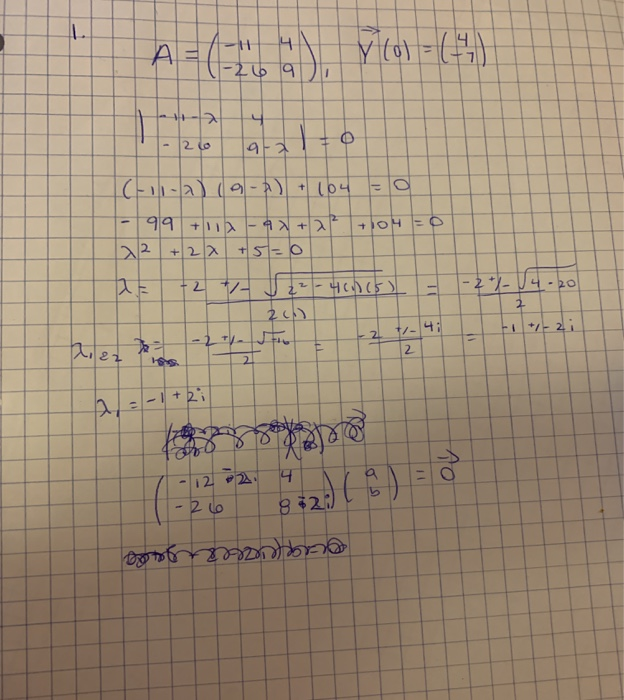 1.
A = (-11 4
-26 9), Y⃗(0) = (4
-7)
| -11-λ 4
-26 9-λ | = 0
(-11-λ)(9-λ) + 104 = 0
- 99 + 11λ - 9λ + λ² + 104 = 0
λ² + 2λ + 5 = 0
λ = -2 +/- √2² - 4(1)(5) / 2(1) = -2 +/- √4-20 / 2
λ1&2 = -2 +/- √-16 / 2 = -2 +/- 4i / 2 = -1 +/- 2i
λ₁ = -1 + 2i
(-12 4
-26 8) (a
b) = 0⃗